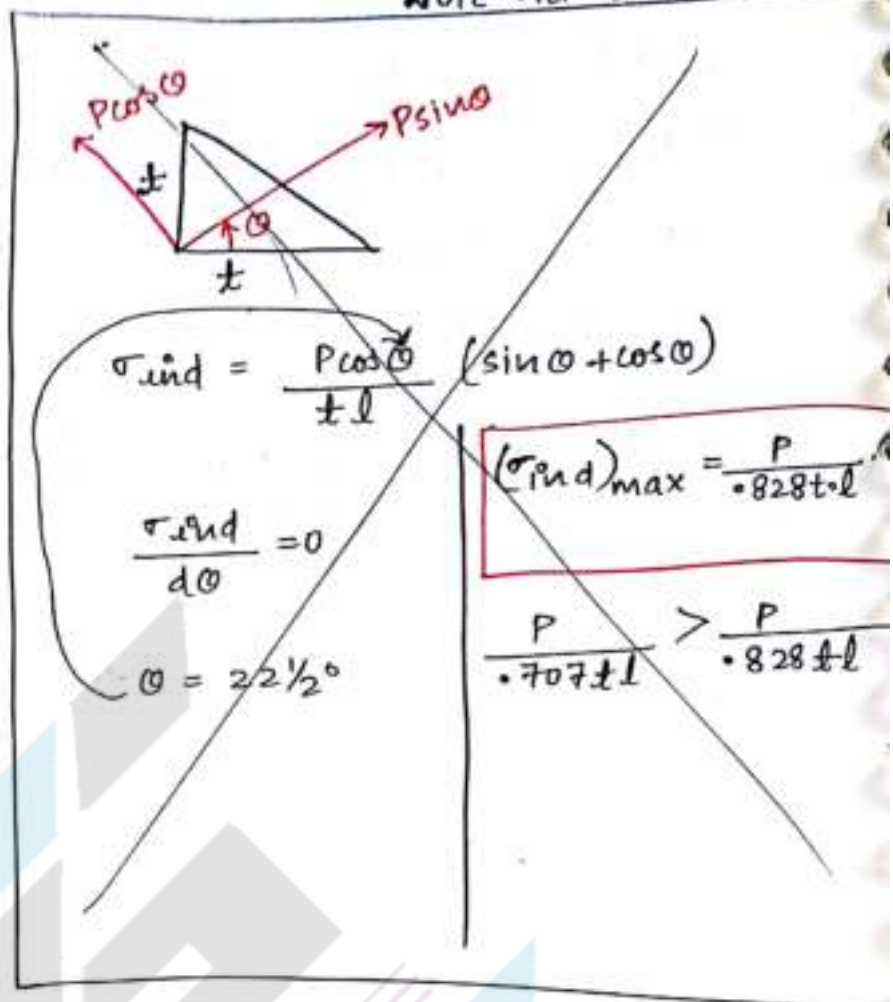 Pcosθ
Psinθ
t
θ
t
σind = Pcosθ / t l (sinθ + cosθ)
σind / dθ = 0
θ = 22½°
(σind)max = P / .828t.l
P / .707tl > P / .828tl